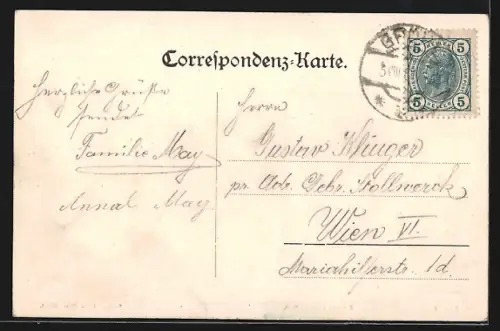 Correspondenz-Karte.
5 5
5 5
Herzliche Grüße
sendet
Familie May
Annal May
Herrn
Gustav Kluger
pr. Adr. Gebr. Stollwerck
Wien VI.
Mariahilferstr. 1d.